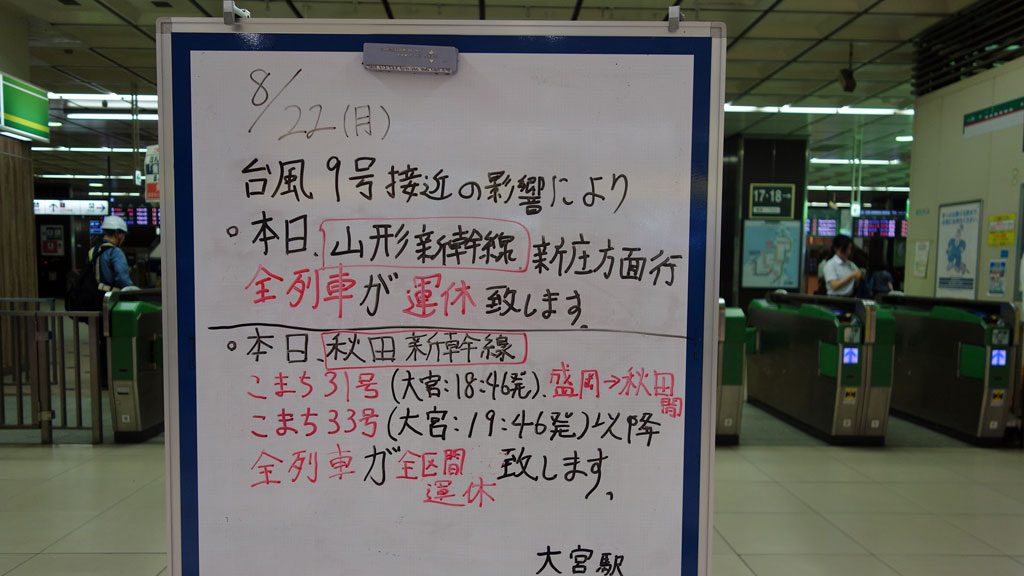 8/22(月)
台風9号接近の影響により
○本日、山形新幹線、新庄方面行
全列車が運休致します。
○本日、秋田新幹線
こまち31号(大宮:18:46発)、盛岡→秋田間
こまち33号(大宮:19:46発)以降
全列車が全区間運休致します。
大宮駅
17-18→